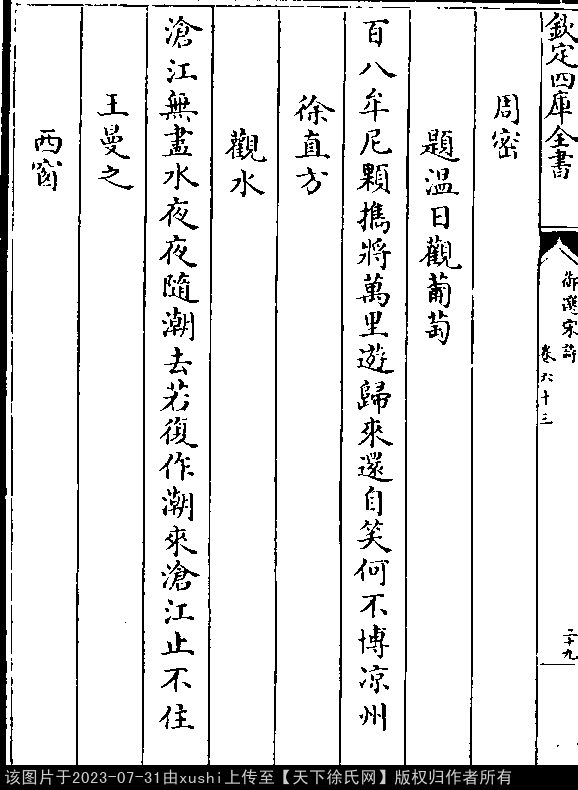 欽定四庫全書
御選宋詩
卷六十三
二十九
周密
題溫日觀葡萄
百八牟尼顆擕將萬里遊歸來還自笑何不博凉州
徐直方
觀水
滄江無盡水夜夜隨潮去若復作潮來滄江止不住
王曼之
西窗
该图片于2023-07-31由xushi上传至【天下徐氏网】版权归作者所有